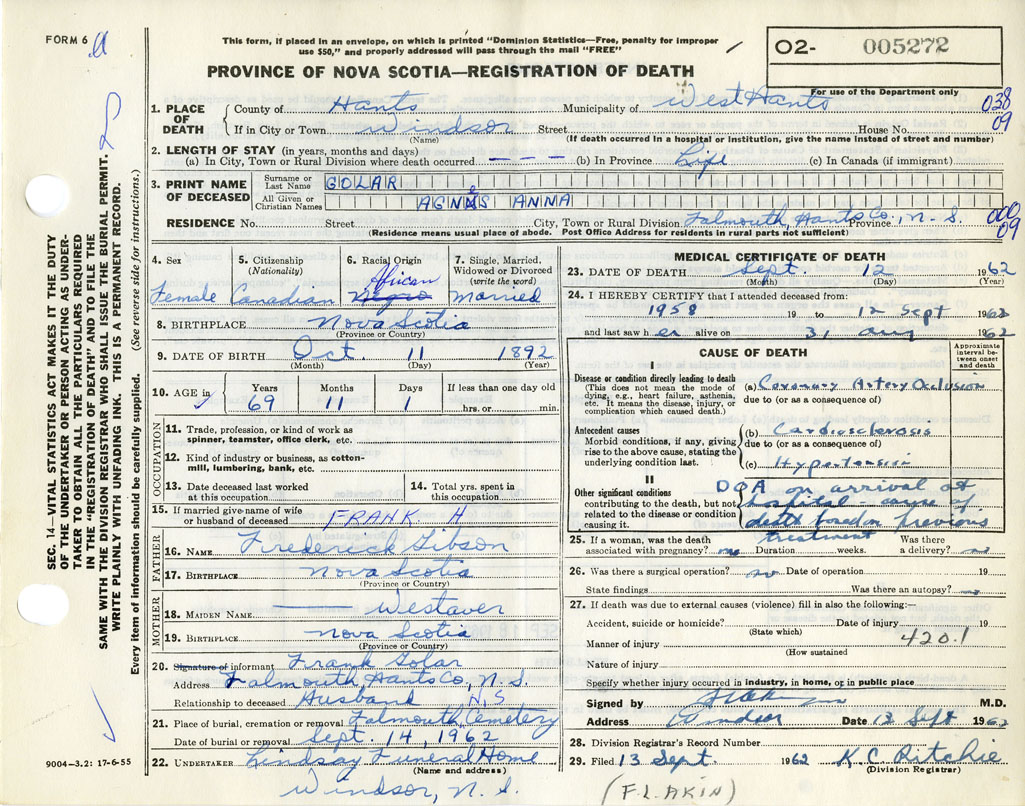 FORM 6
This form, if placed in an envelope, on which is printed "Dominion Statistics—Free, penalty for improper
use $50," and properly addressed will pass through the mail "FREE"
O2- 005272
PROVINCE OF NOVA SCOTIA—REGISTRATION OF DEATH
For use of the Department only
1. PLACE OF DEATH County of Hants Municipality of West Hants 038
If in City or Town Windsor Street House No. 09
(Name) (If death occurred in a hospital or Institution, give the name instead of street and number)
2. LENGTH OF STAY (in years, months and days)
(a) In City, Town or Rural Division where death occurred — — — (b) In Province Life (c) In Canada (if immigrant)
3. PRINT NAME OF DECEASED Surname or Last Name GOLAR
All Given or Christian Names AGNES ANNA
RESIDENCE No. Street City, Town or Rural Division Falmouth, Hants Co., N.S. Province 000
(Residence means usual place of abode. Post Office Address for residents in rural parts not sufficient) 09
4. Sex Female
5. Citizenship (Nationality) Canadian
6. Racial Origin African Negro
7. Single, Married, Widowed or Divorced (write the word) Married
8. BIRTHPLACE Nova Scotia
(Province or Country)
9. DATE OF BIRTH Oct. 11 1892
(Month) (Day) (Year)
10. AGE in Years Months Days If less than one day old
69 11 1 hrs. or min.
OCCUPATION
11. Trade, profession, or kind of work as
spinner, teamster, office clerk, etc.
12. Kind of industry or business, as cotton-
mill, lumbering, bank, etc.
13. Date deceased last worked
at this occupation
14. Total yrs. spent in
this occupation
15. If married give name of wife
or husband of deceased FRANK H
FATHER
16. NAME Frederick Gibson
17. BIRTHPLACE Nova Scotia
(Province or Country)
MOTHER
18. MAIDEN NAME —— Westaver
19. BIRTHPLACE Nova Scotia
(Province or Country)
20. Signature of informant Frank Golar
Address Falmouth, Hants Co., N.S.
Relationship to deceased Husband N.S
21. Place of burial, cremation or removal Falmouth Cemetery
Date of burial or removal Sept. 14, 1962
22. UNDERTAKER Lindsay Funeral Home
(Name and address)
Windsor, N.S.
MEDICAL CERTIFICATE OF DEATH
23. DATE OF DEATH Sept. 12 1962
(Month) (Day) (Year)
24. I HEREBY CERTIFY that I attended deceased from:
1958 19 to 12 Sept 1962
and last saw her alive on 31 Aug 1962
CAUSE OF DEATH
Approximate
interval be-
tween onset
and death
I
Disease or condition directly leading to death
(This does not mean the mode of
dying, e.g., heart failure, asthenia,
etc. It means the disease, injury, or
complication which caused death.)
(a) Coronary Artery Occlusion
due to (or as a consequence of)
Antecedent causes
Morbid conditions, if any, giving
rise to the above cause, stating the
underlying condition last.
(b) Cardiosclerosis
due to (or as a consequence of)
(c) Hypertension
II
Other significant conditions
contributing to the death, but not
related to the disease or condition
causing it.
DOA on arrival at
hospital - cause of
death based on previous
treatment
25. If a woman, was the death Was there
associated with pregnancy? no Duration weeks. a delivery? no
26. Was there a surgical operation? no Date of operation 19
State findings Was there an autopsy? no
27. If death was due to external causes (violence) fill in also the following:—
Accident, suicide or homicide? Date of injury 19
(State which)
Manner of injury 420.1
(How sustained
Nature of injury
Specify whether injury occurred in industry, in home, or in public place
Signed by M.D.
Address Windsor Date 13 Sept 1962
28. Division Registrar's Record Number
29. Filed 13 Sept. 1962 K.C. Ritchie
(Division Registrar)
(F.L. AKIN)
SEC. 14—VITAL STATISTICS ACT MAKES IT THE DUTY
OF THE UNDERTAKER OR PERSON ACTING AS UNDER-
TAKER TO OBTAIN ALL THE PARTICULARS REQUIRED
IN THE "REGISTRATION OF DEATH" AND TO FILE THE
SAME WITH THE DIVISION REGISTRAR WHO SHALL ISSUE THE BURIAL PERMIT.
WRITE PLAINLY WITH UNFADING INK. THIS IS A PERMANENT RECORD.
Every item of information should be carefully supplied. (See reverse side for instructions.)
9004—3.2: 17-6-55